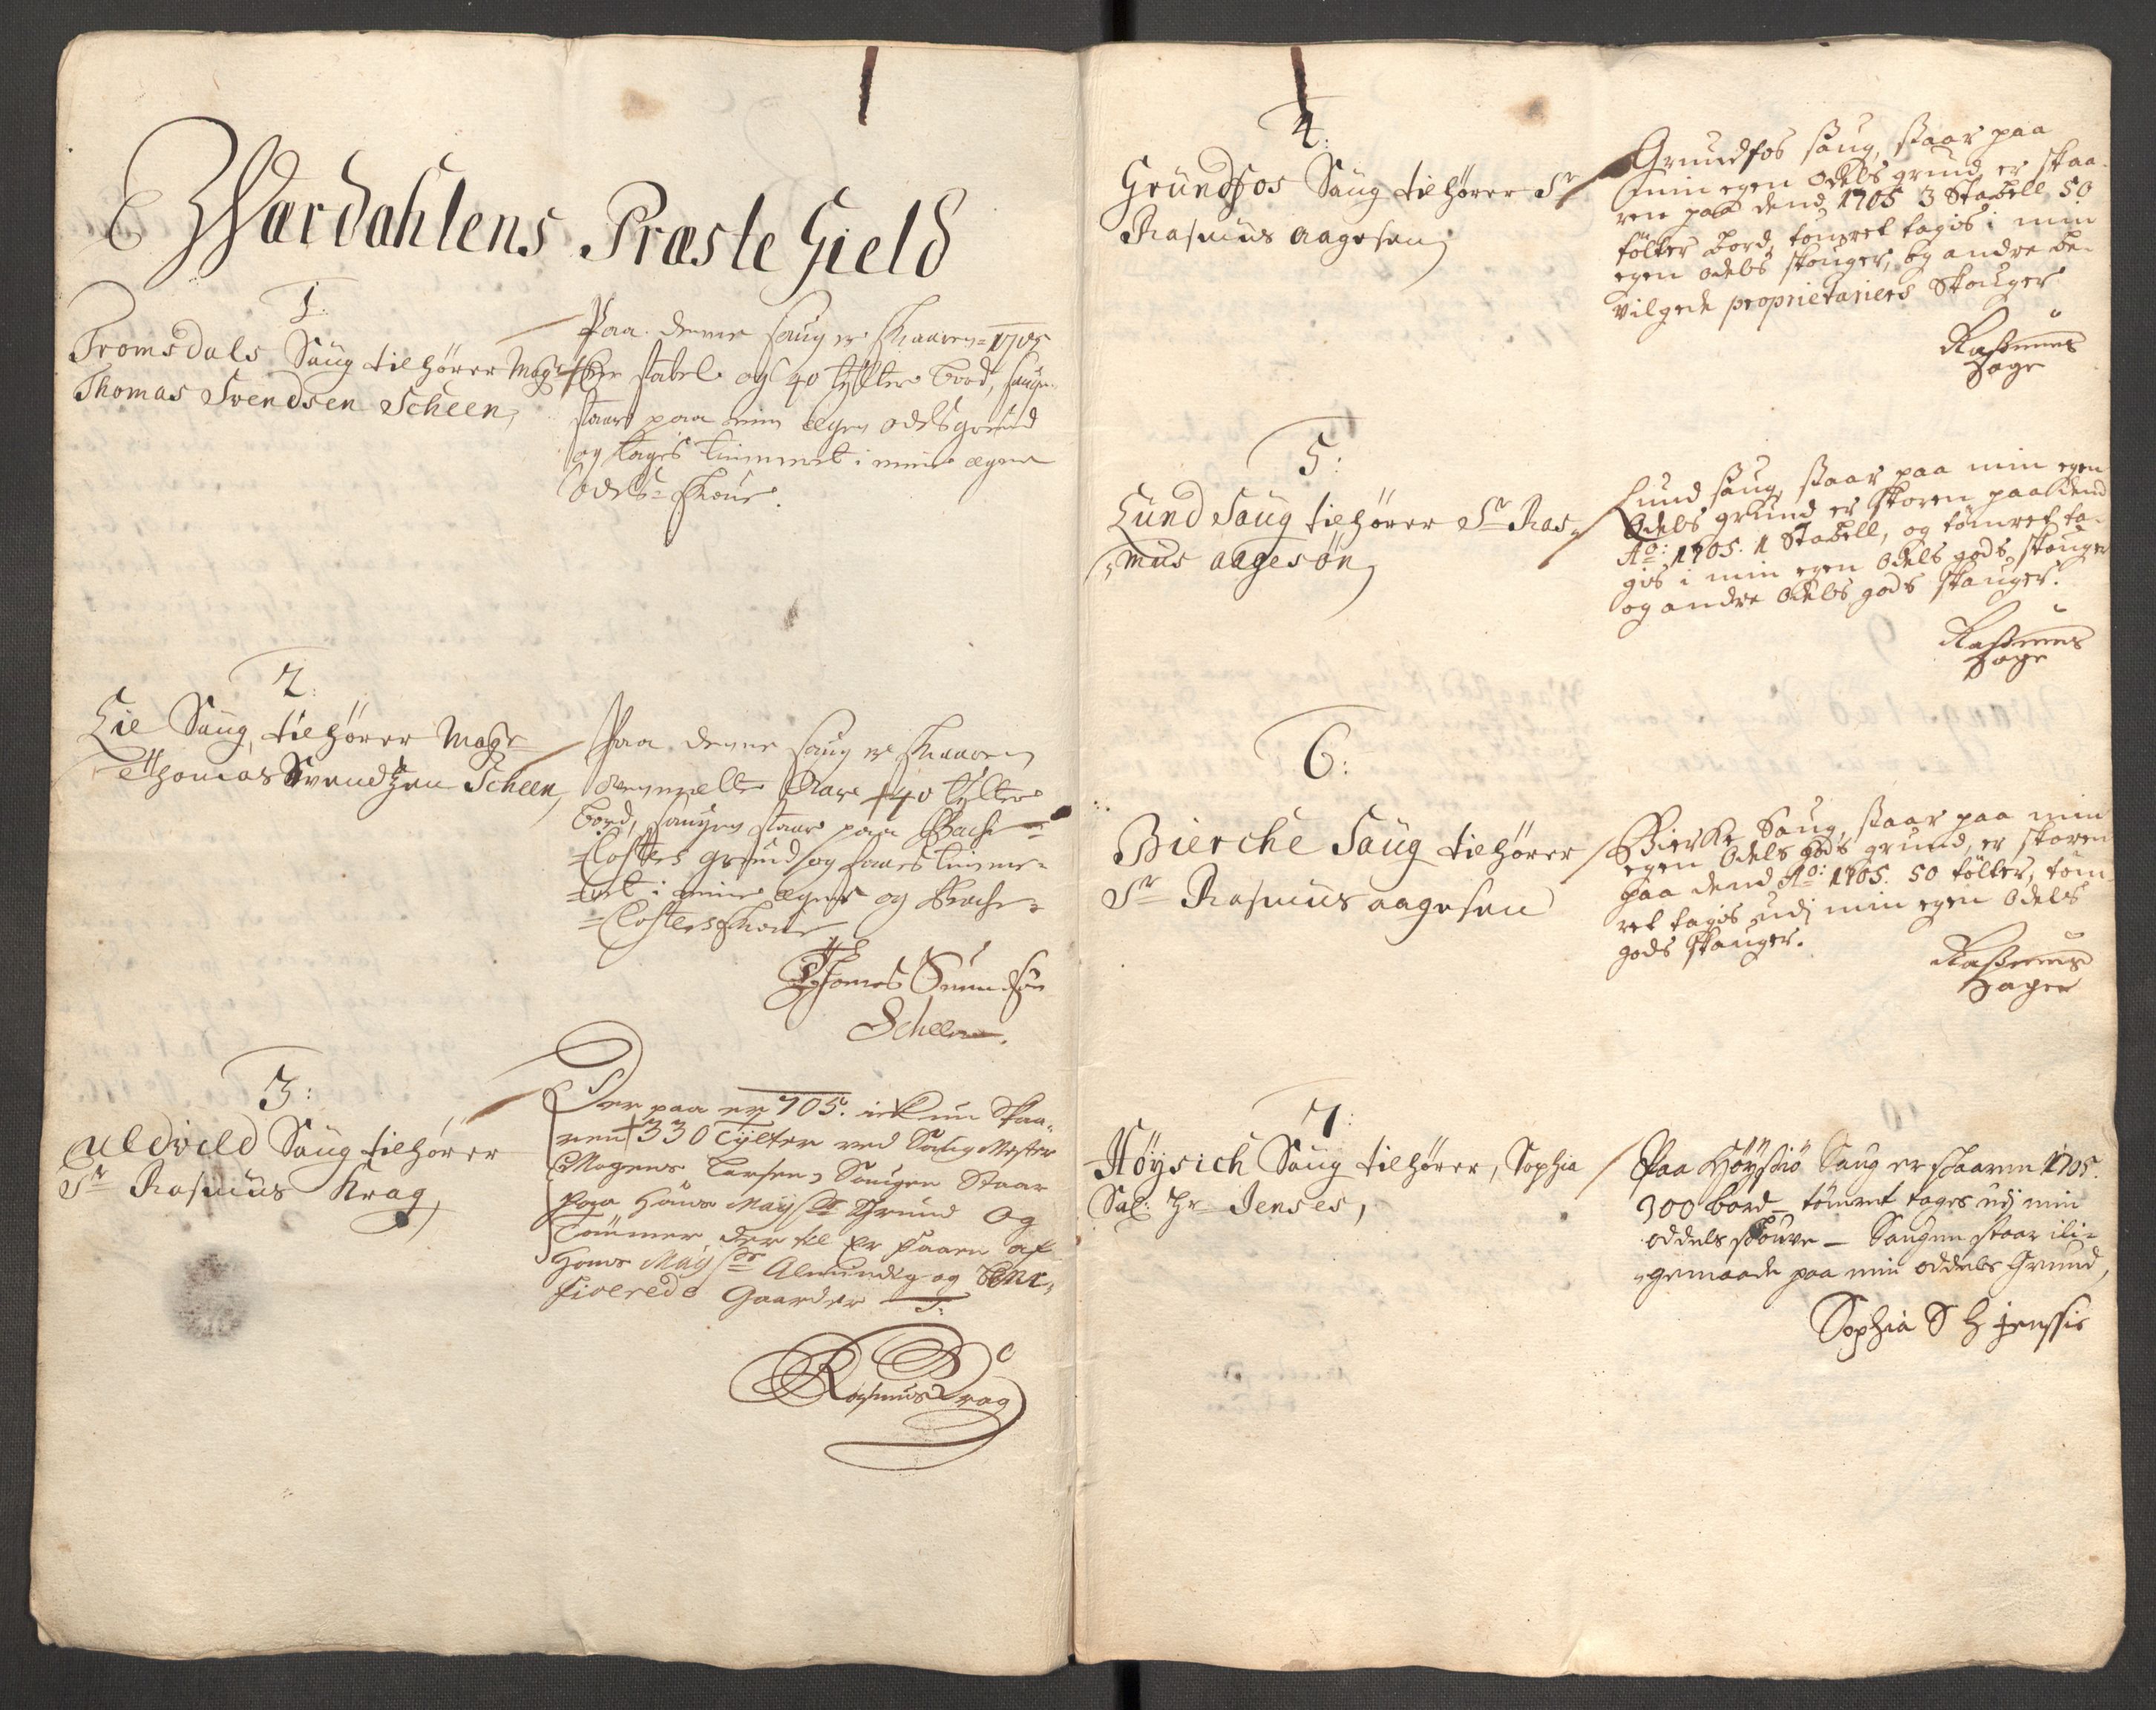 Wærdahlens Præste Gield
1.
Tromsdals Saug tilhører Magr
Thomas Svendsen Scheen,
Paa denne saug er skaaren 1705
En stabel og 40 tylter bord, saugen
staar paa min egen odelsgrund
og tages timmeret i mine egne
Odels-skoue.
2:
Lie Saug, tilhører Magr
Thomas Svendtzen Scheen,
Paa denne saug er skaaren
bemelte Aar 40 tylter
bord, saugen staar paa Bache-
-Closters grund og faaes timme-
-ret i mine egne og Bache-
-Closters skoue
Thomes Suendsøn
Scheen.
3:
Uldvild Saug tilhører
Sr Rasmus Krag,
Der paa er 705. ickun Skaa-
ren 330 Tylter ved Saug Mester
Mogens Larsen, Saugen Staar
paa Hans Mayst Grund Og
Tømmer der til Er faaen af
Hans Mayst Almindig og
Gaarder
Rasmus Krag
4:
Grundfos Saug tilhører Sr
Rasmus Aagesen,
Grundfos saug, staar paa
min egen Odels grund er skaa-
ren paa dend 1705 3 Stabell 50
tölter bord, tømret tagis i min
egen odels skouger, og andre be-
vilgede proprietariers Skouger
Rassmus
Hage
5:
Lund Saug tilhører Sr Ras-
-mus Aagesøn,
Lund saug, staar paa min egen
Odels grund er skoren paa dend
Ao: 1705. 1 Stabell, og tømret ta-
gis i min egen Odels gods skouger
og andre Odels gods skouger.
Rassmus
Hage
6:
Bierche Saug tilhører
Sr Rasmus Aagesen
Bierke Saug, staar paa min
egen Odels gods grund, er skoren
paa dend Ao: 1705. 50 tölter, töm
ret tagis udj min egen Odels
gods skouger.
Rassmus
Hagen
7:
Höysich Saug tilhører, Sophia
Sal: Hr Jenses,
Paa Höysiö Saug er skaaren 1705.
300 bord - tømret tages udj min
oddels skouve - Saugen staar ili-
-gemaade paa min oddels Grund,
Sophia S H Jenssis